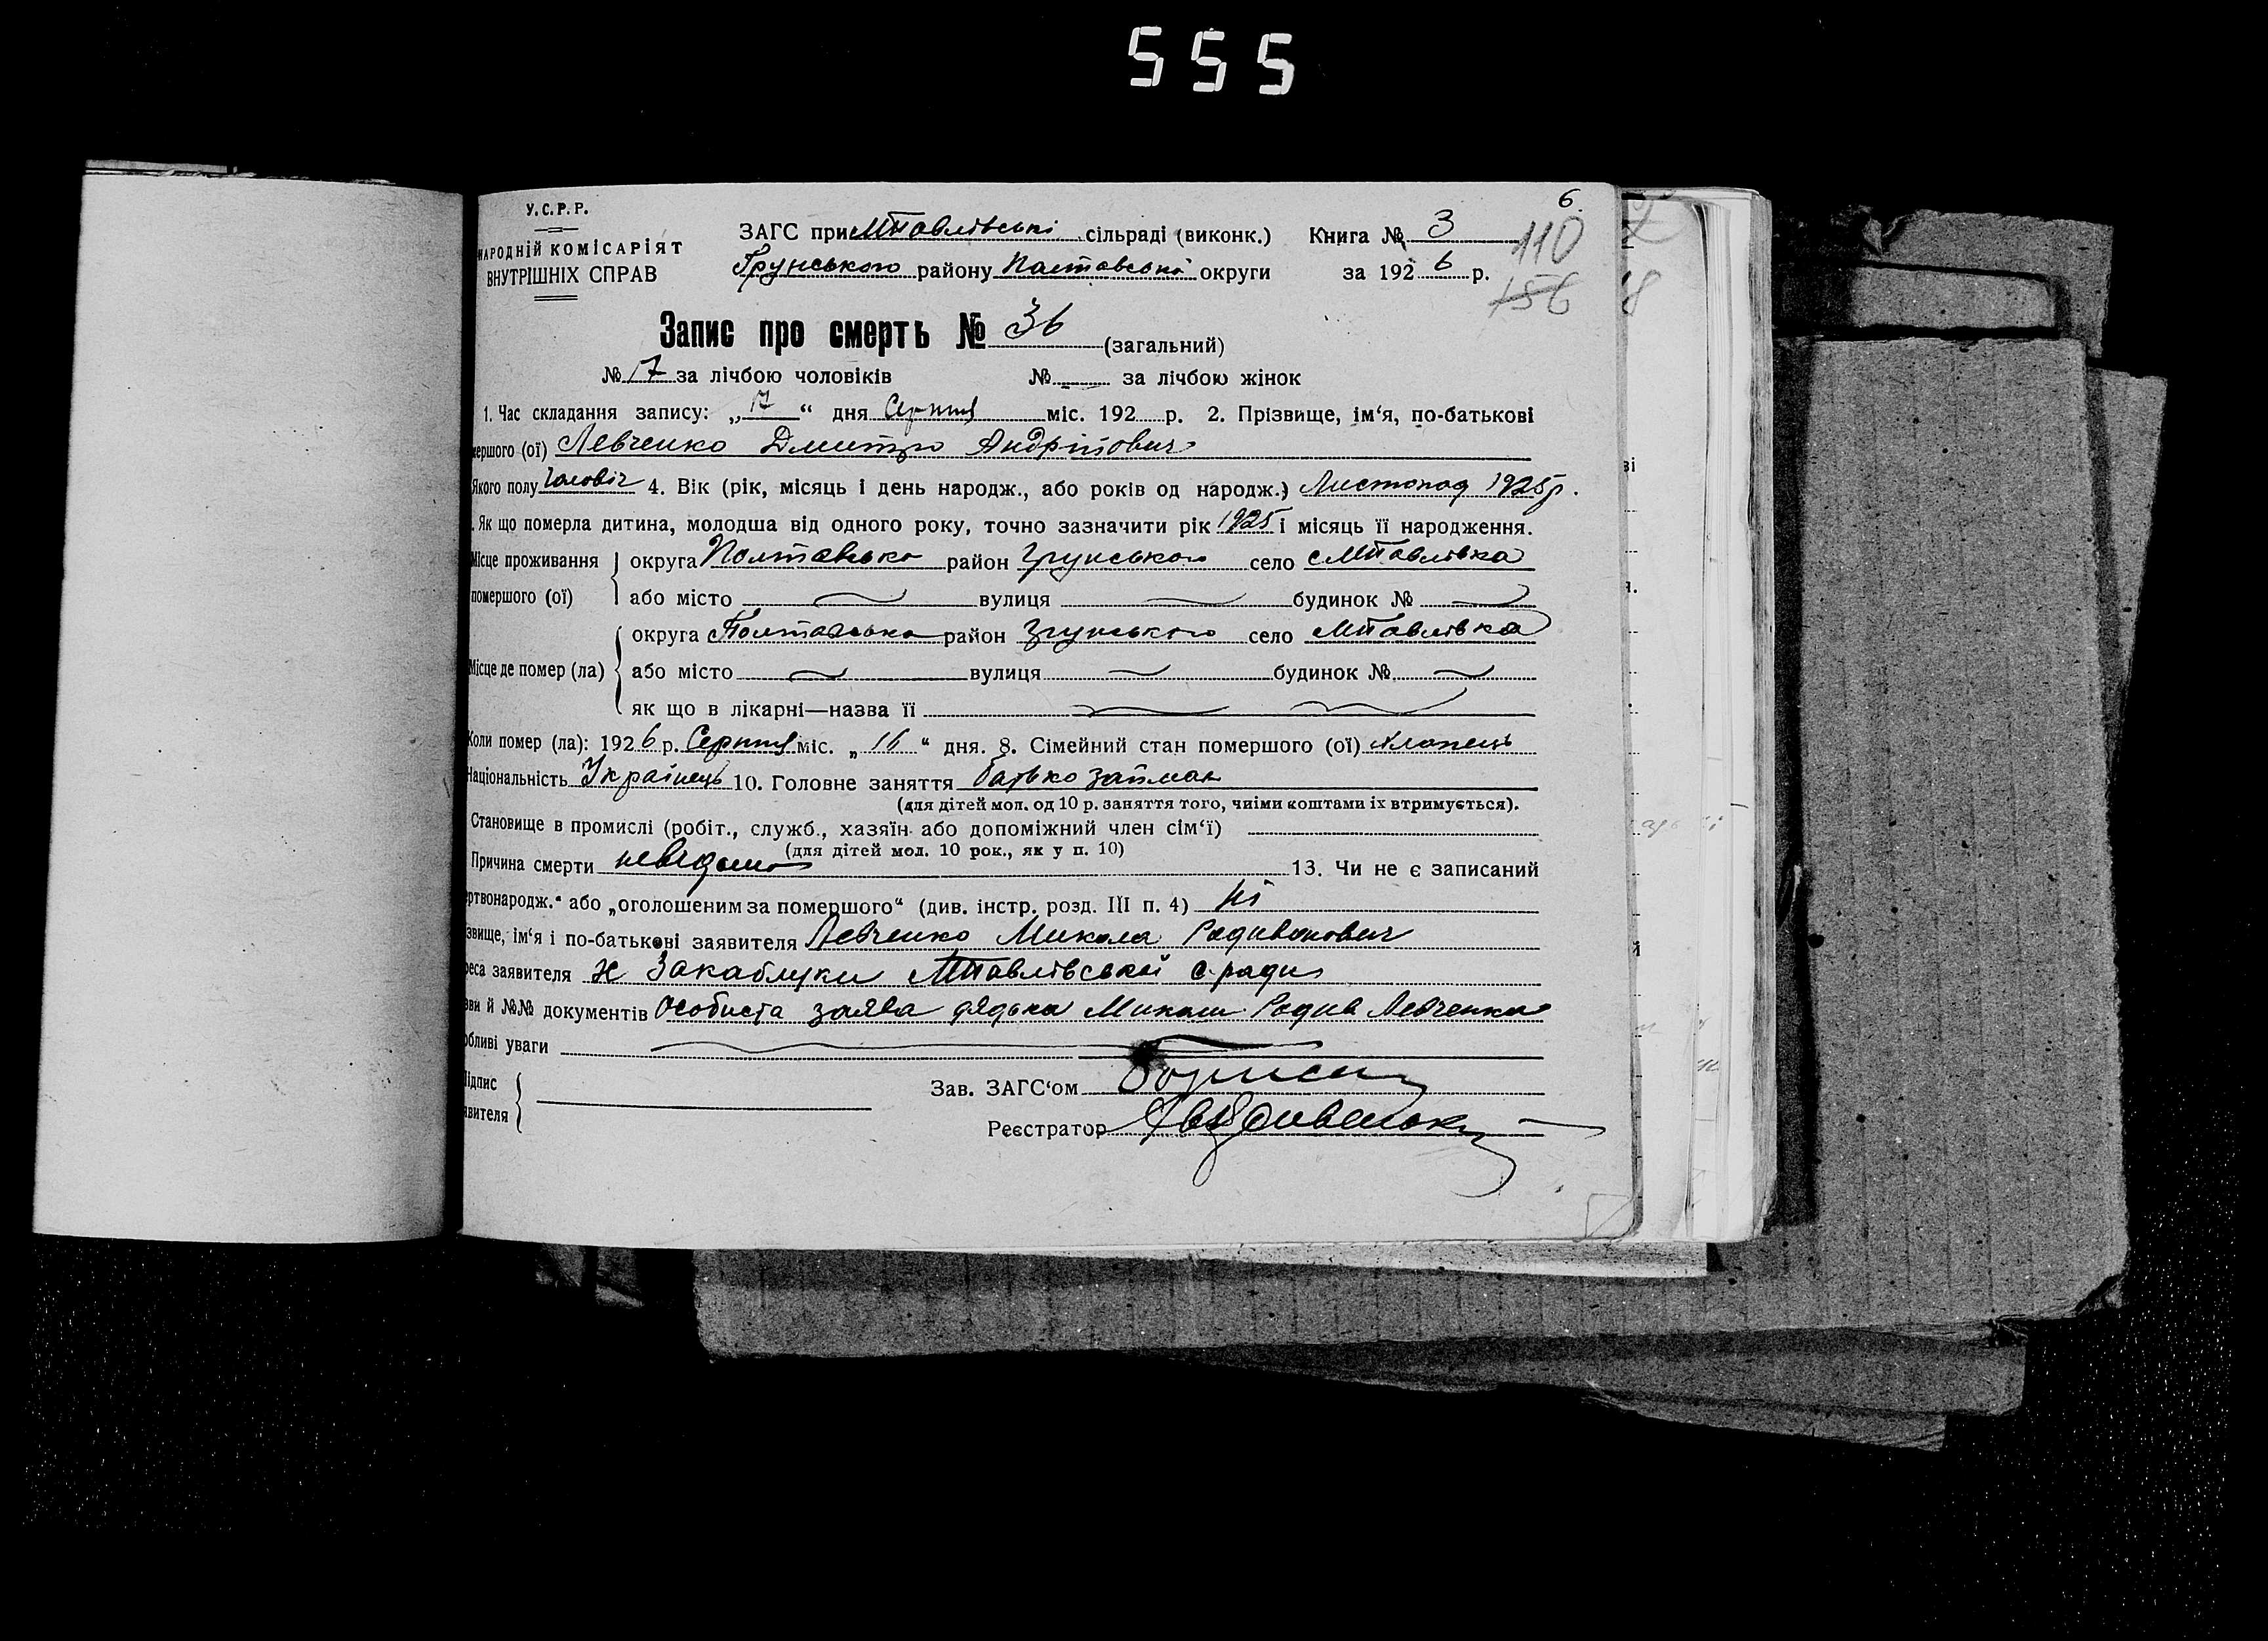 555
У.С.Р.Р.
НАРОДНІЙ КОМІСАРІЯТ
ВНУТРІШНІХ СПРАВ
6.
ЗАГС при МПавлівські сільраді (виконк.) Книга № 3
110
Грунського району Полтавської округи за 1926 р.
156
Запис про смерть № 36 (загальний)
№ 17 за лічбою чоловіків № за лічбою жінок
1. Час складання запису: „17“ дня Серпня міс. 192 р. 2. Прізвище, ім‘я, по-батькові
мершого (ої) Левченко Дмитро Андрійович
Якого полу Чоловіч 4. Вік (рік, місяць і день народж., або років од народж.) Листопад 1925р.
. Як що померла дитина, молодша від одного року, точно зазначити рік 1925 і місяць її народження.
Місце проживання округа Полтавсько район Грунського село МПавлівка
помершого (ої) або місто вулиця будинок №
округа Полтавсько район Грунського село МПавлівка
Місце де помер (ла) або місто вулиця будинок №
як що в лікарні—назва її
Коли помер (ла): 1926 р. Серпня міс. „16“ дня. 8. Сімейний стан помершого (ої) хлопець
Національність Українець 10. Головне заняття батько займан
(для дітей мол. од 10 р. заняття того, чиїми коштами їх втримується).
Становище в промислі (робіт., служб., хазяїн або допоміжний член сім‘ї)
(для дітей мол. 10 рок., як у п. 10)
Причина смерти невідомо 13. Чи не є записаний
ертвонародж.“ або „оголошеним за помершого“ (див. інстр. розд. III п. 4) Ні
звище, ім‘я і по-батькові заявителя Левченко Микола Родивонович
реса заявителя х Закаблуки МПавлівської с.ради
зви й №№ документів Особиста заява дядька Миколи Родив Левченка
обливі уваги
Підпис
явителя
Зав. ЗАГС‘ом
Реєстратор